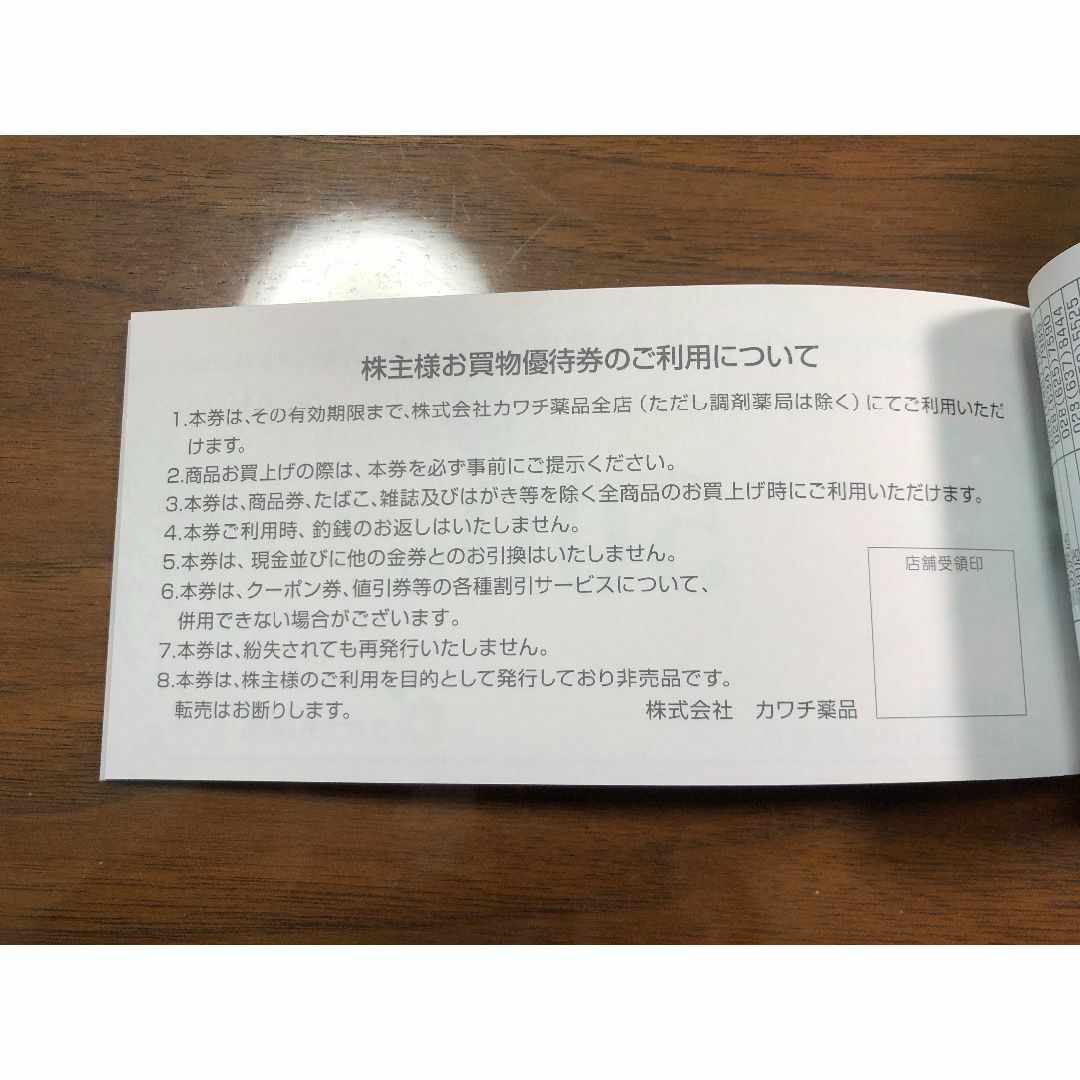 株主様お買物優待券のご利用について
1.本券は、その有効期限まで、株式会社カワチ薬品全店（ただし調剤薬局は除く）にてご利用いただ
けます。
2.商品お買上げの際は、本券を必ず事前にご提示ください。
3.本券は、商品券、たばこ、雑誌及びはがき等を除く全商品のお買上げ時にご利用いただけます。
4.本券ご利用時、釣銭のお返しはいたしません。
5.本券は、現金並びに他の金券とのお引換はいたしません。
6.本券は、クーポン券、値引券等の各種割引サービスについて、
併用できない場合がございます。
7.本券は、紛失されても再発行いたしません。
8.本券は、株主様のご利用を目的として発行しており非売品です。
転売はお断りします。
株式会社　カワチ薬品
店舗受領印
028 (637) 8444